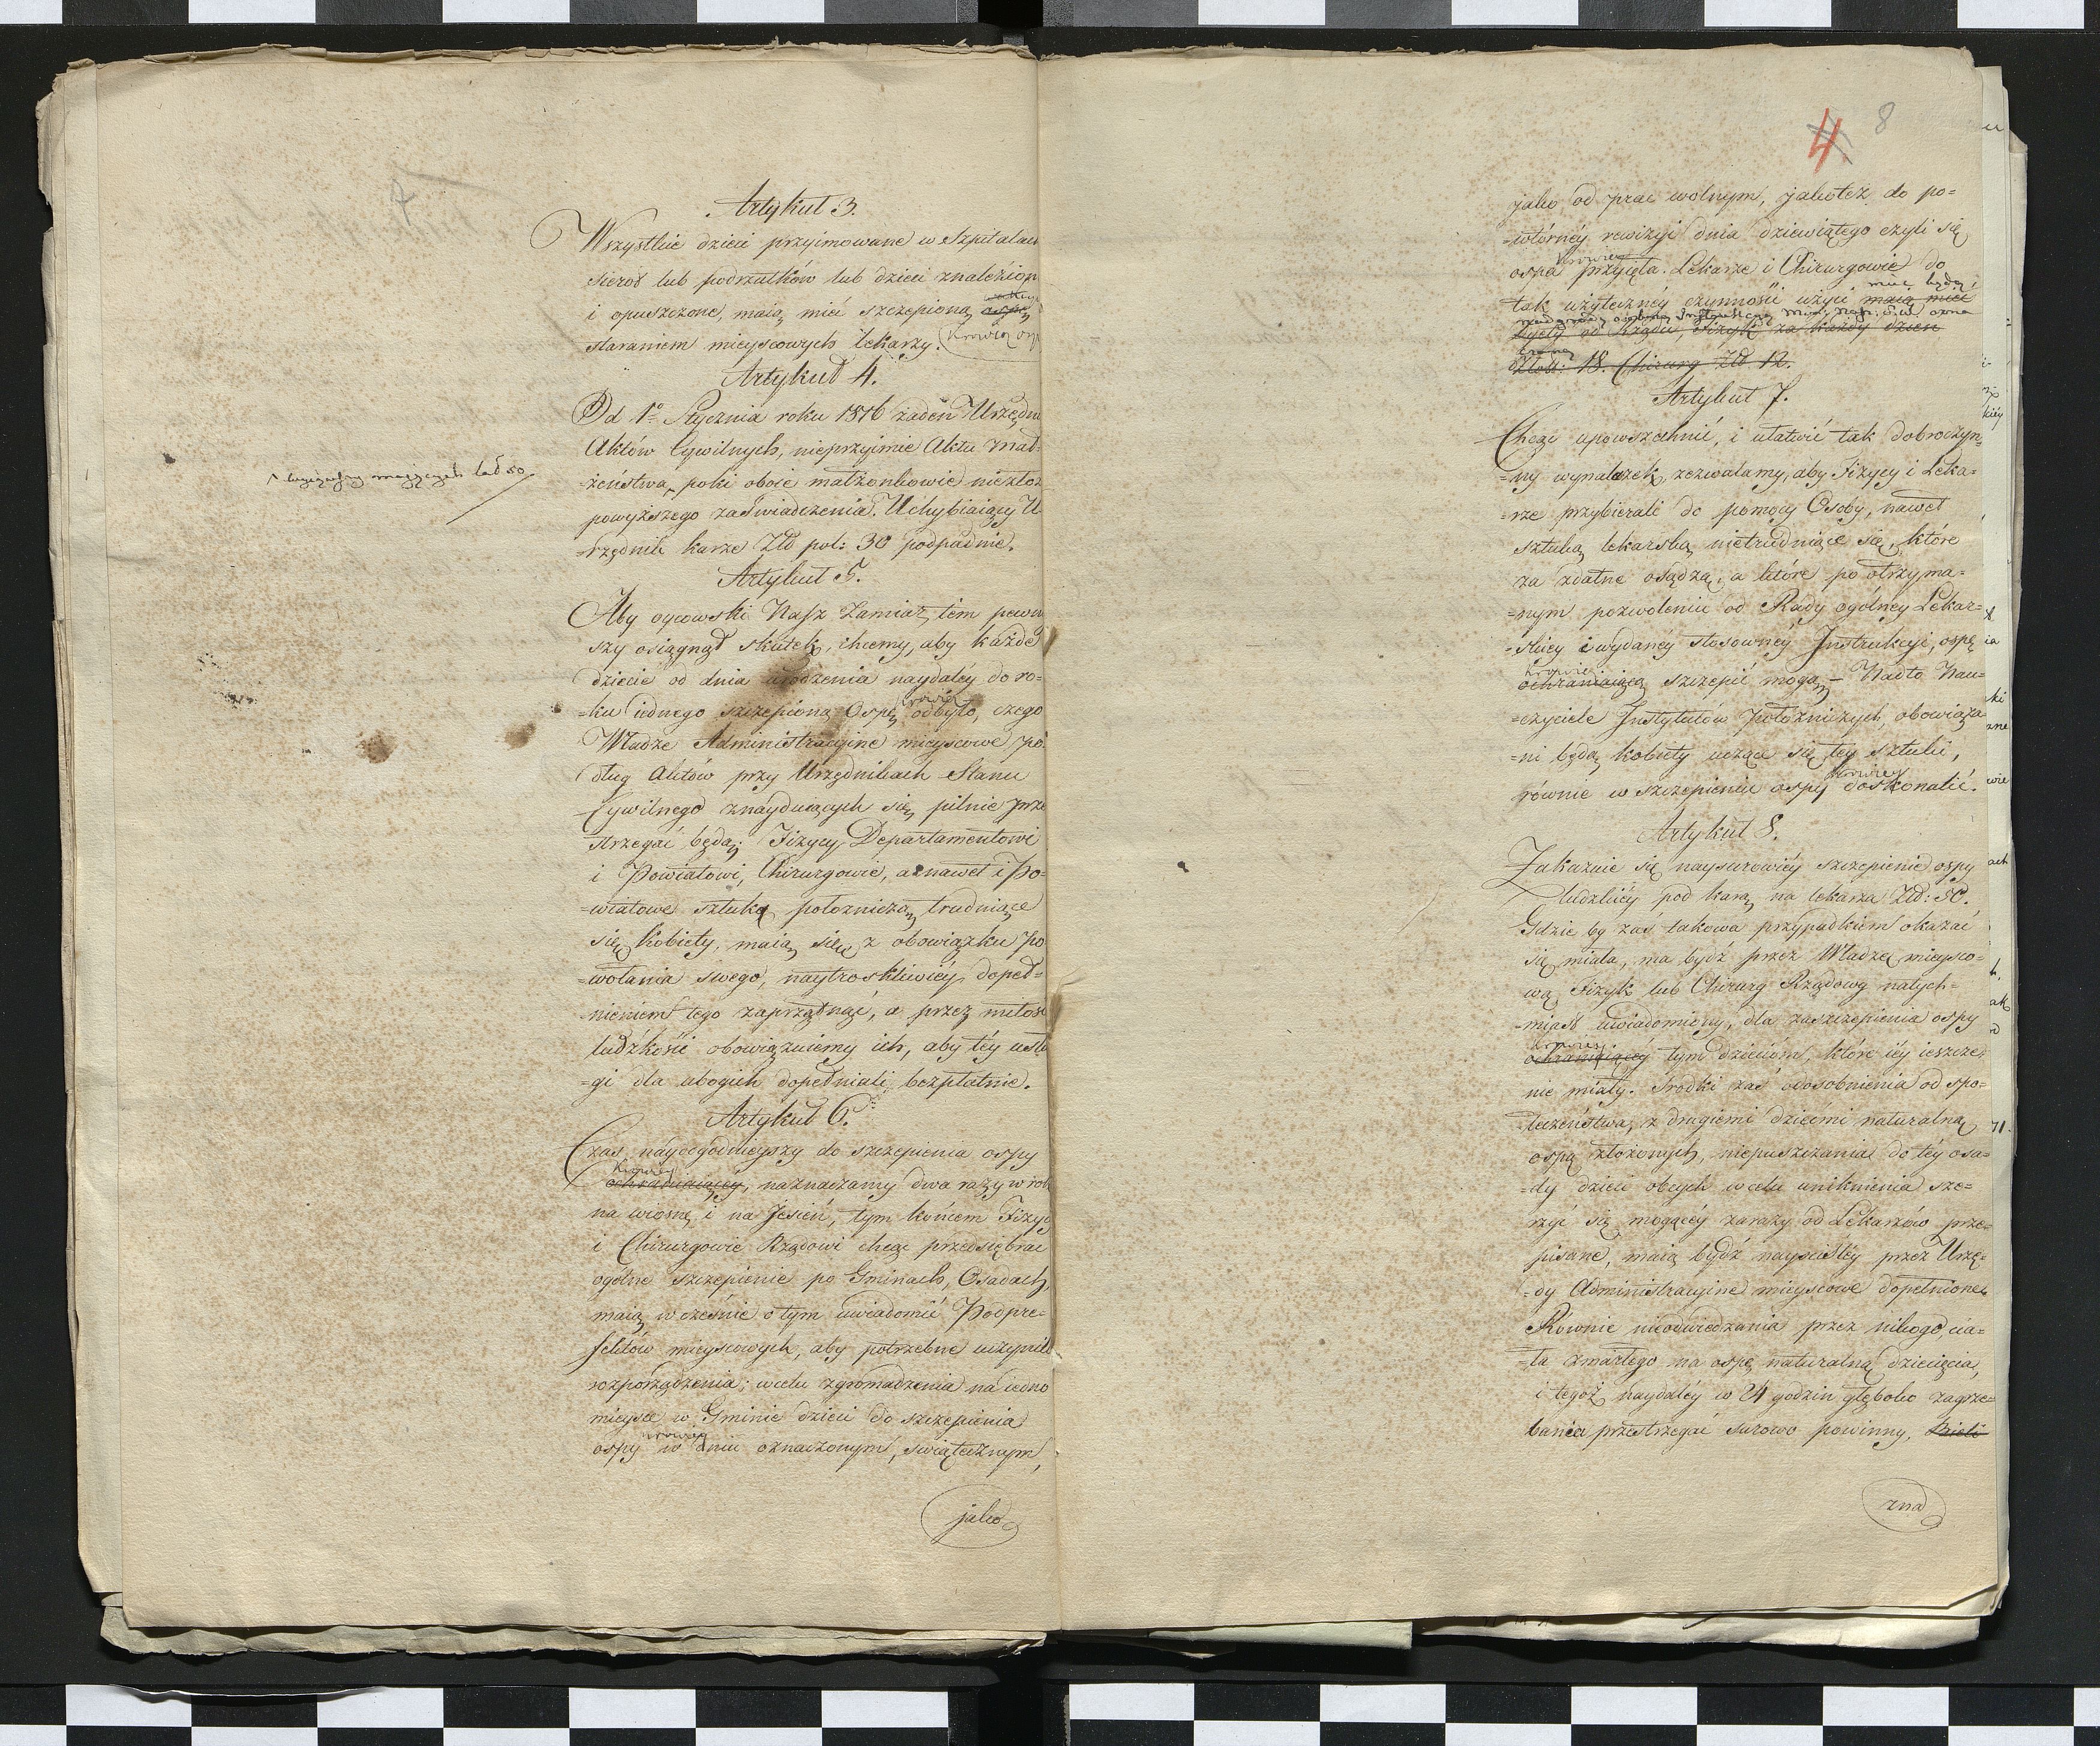 7
Artykuł 3.
Wszystkie dzieci przyimowane w Szpitalach
sierot lub podrzutków lub dzieci znalezion
i opuszczone, maią mieć szczepioną
staraniem mieyscowych lekarzy. krowią osp
Artykuł 4.
Od 1o Stycznia roku 1816 żaden Urzędni
Aktów Cywilnych, nieprzyimie Aktu mał=
^ wyiąwszy maiących lat 50
=żeństwa, poki oboie małżonkowie niezłoż
powyższego zaświadczenia. Uchybiaiący U=
=rzędnik karze Złł pol: 30 podpadnie.
Artykuł 5.
Aby oycowski Nasz Zamiar, tem pewni
szy osiągnął skutek, chcemy, aby każde
dziecie od dnia urodzenia naydaléy do ro=
krowią
=ku iednego szczepioną Ospę odbyło, czego
Władze Administracyine mieyscowe po=
dług Aktów przy Urzędnikach Stanu
Cywilnego znayduiących się, pilnie prze
strzegać będą; Fizycy Departamentowi
i Powiatowi, Chirurgowie, a nawet i Po=
=wiatowe sztuką położniczą trudniące
się kobiety, maią się z obowiązku po
=wołania swego, naytroskliwiéy dopeł=
=nieniem tego zaprzątnąć, a przez miłość
ludzkości obowiązuiemy ich, aby téy usłu
=gi dla ubogich dopełniali bezpłatnie.
Artykuł 6.
Czas náydogodnieyszy do szczepienia ospy
krowiey
ochraniaiącéy, naznaczamy dwa razy w rok
na wiosnę i na Jesień, tym końcem Fizyc
i Chirurgowie Rządowi chcąc przedsiębrać
ogólne szczepienie po Gminach, Osadach,
maią wcześnie o tym uwiadomić Podpre=
fektów mieyscowych, aby potrzebne uczynili
rozporządzenia; w celu zgromadzenia na iedno
mieysce w Gminie dzieci do szczepienia
krowiey
ospy w dniu oznaczonym, swiątecznym,
jako
4 8
jako od prac wolnym, jakoteż do po=
=wtórnéy rewizyi dnia dziewiątego czyli się
krowia
ospa przyięła. Lekarze i Chirurgowie do
mieć będą
tak użytecznéy czynności użyci maią mieć
od Rządu, Fizyk za każdy dzień
Złot: 18. Chirurg Złł 12.
Artykuł 7.
Chcąc upowszechnić, i ułatwić tak dobroczyn=
=ny wynalazek, zezwalamy, aby Fizycy i Leka=
=rze przybierali do pomocy Osoby, nawet
sztuką lekarską nietrudniące się, które
za zdatne osądzą, a które po otrzyma=
=nym pozwoleniu od Rady ogólney Lekar=
=skiey i wydanéy stosownéy Instrukcyi, ospę
krowią
ochraniaiącą szczepić mogą – Nadto Nau=
=czyciele Instytutów położniczych, obowiąza=
=ni będą kobiety uczące się tey sztuki,
krowiey
równie w szczepieniu ospy doskonalić.
Artykuł 8.
Zakazuie się naysurowiéy szczepienie ospy
ludzkiéy pod karą na lekarza Złł: 50.
Gdzie by zaś takowa przypadkiem okazać
się miała, ma bydź przez Władzę mieysco=
wą Fizyk lub Chirurg Rządowy natych=
=miast uwiadomiony, dla zaszczepienia ospy
krowiey
ochraniaiącéy tym dzieciom, które iéy ieszcze
nie miały. Srodki zaś odosobnienia od spo=
=łeczeństwa, z drugiemi dziećmi naturalną
ospą złożonych, niepuszczania do téy osa=
=dy dzieci obcych w celu uniknienia sze=
rzyć się mogącéy zarazy od Lekarzów prze=
pisane, maią bydź nayściśléy przez Urzę=
=dy Administracyine mieyscowe dopełnione.
Równie nieodwiedzania przez nikogo, cia=
=ła zmarłego na ospę naturalną dziecięcia,
i tegoż naydaléy w 24 godzin głęboko zagrze=
bania przestrzegać surowo powinny,
zna